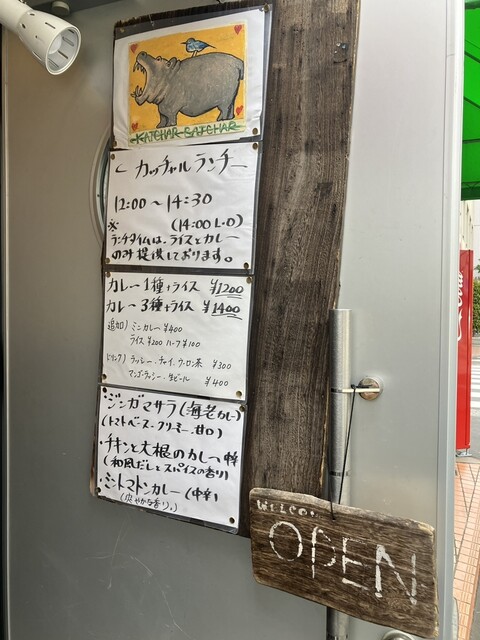 KATCHAR BATCHAR
カッチャルランチ
12:00〜14:30
※ (14:00 L.O)
ランチタイムは、ライスとカレー
のみ提供しております。
カレー1種+ライス ¥1200
カレー3種+ライス ¥1400
追加) ミニカレー ¥400
ライス ¥200 ハーフ ¥100
ドリンク) ラッシー、チャイ、ウーロン茶 ¥300
マンゴーラッシー、生ビール ¥400
・ジンガマサラ(海老カレー)
(トマトベース・クリーミー、甘口)
・チキンと大根のカレー 中辛
(和風だしとスパイスの香り)
・ミントマトンカレー(中辛)
(爽やかな香り。)
WELCOME
OPEN